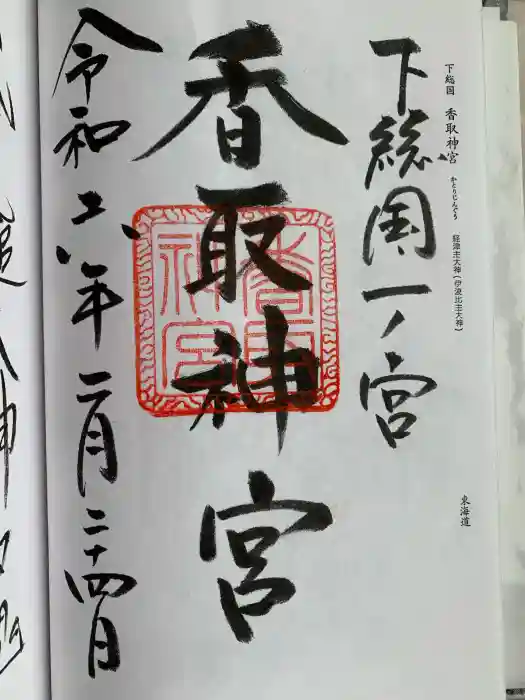 下総国 香取神宮 かとりじんぐう 経津主大神（伊波比主大神）
東海道
下総国一ノ宮
香取神宮
香取神宮
令和六年二月二十四日